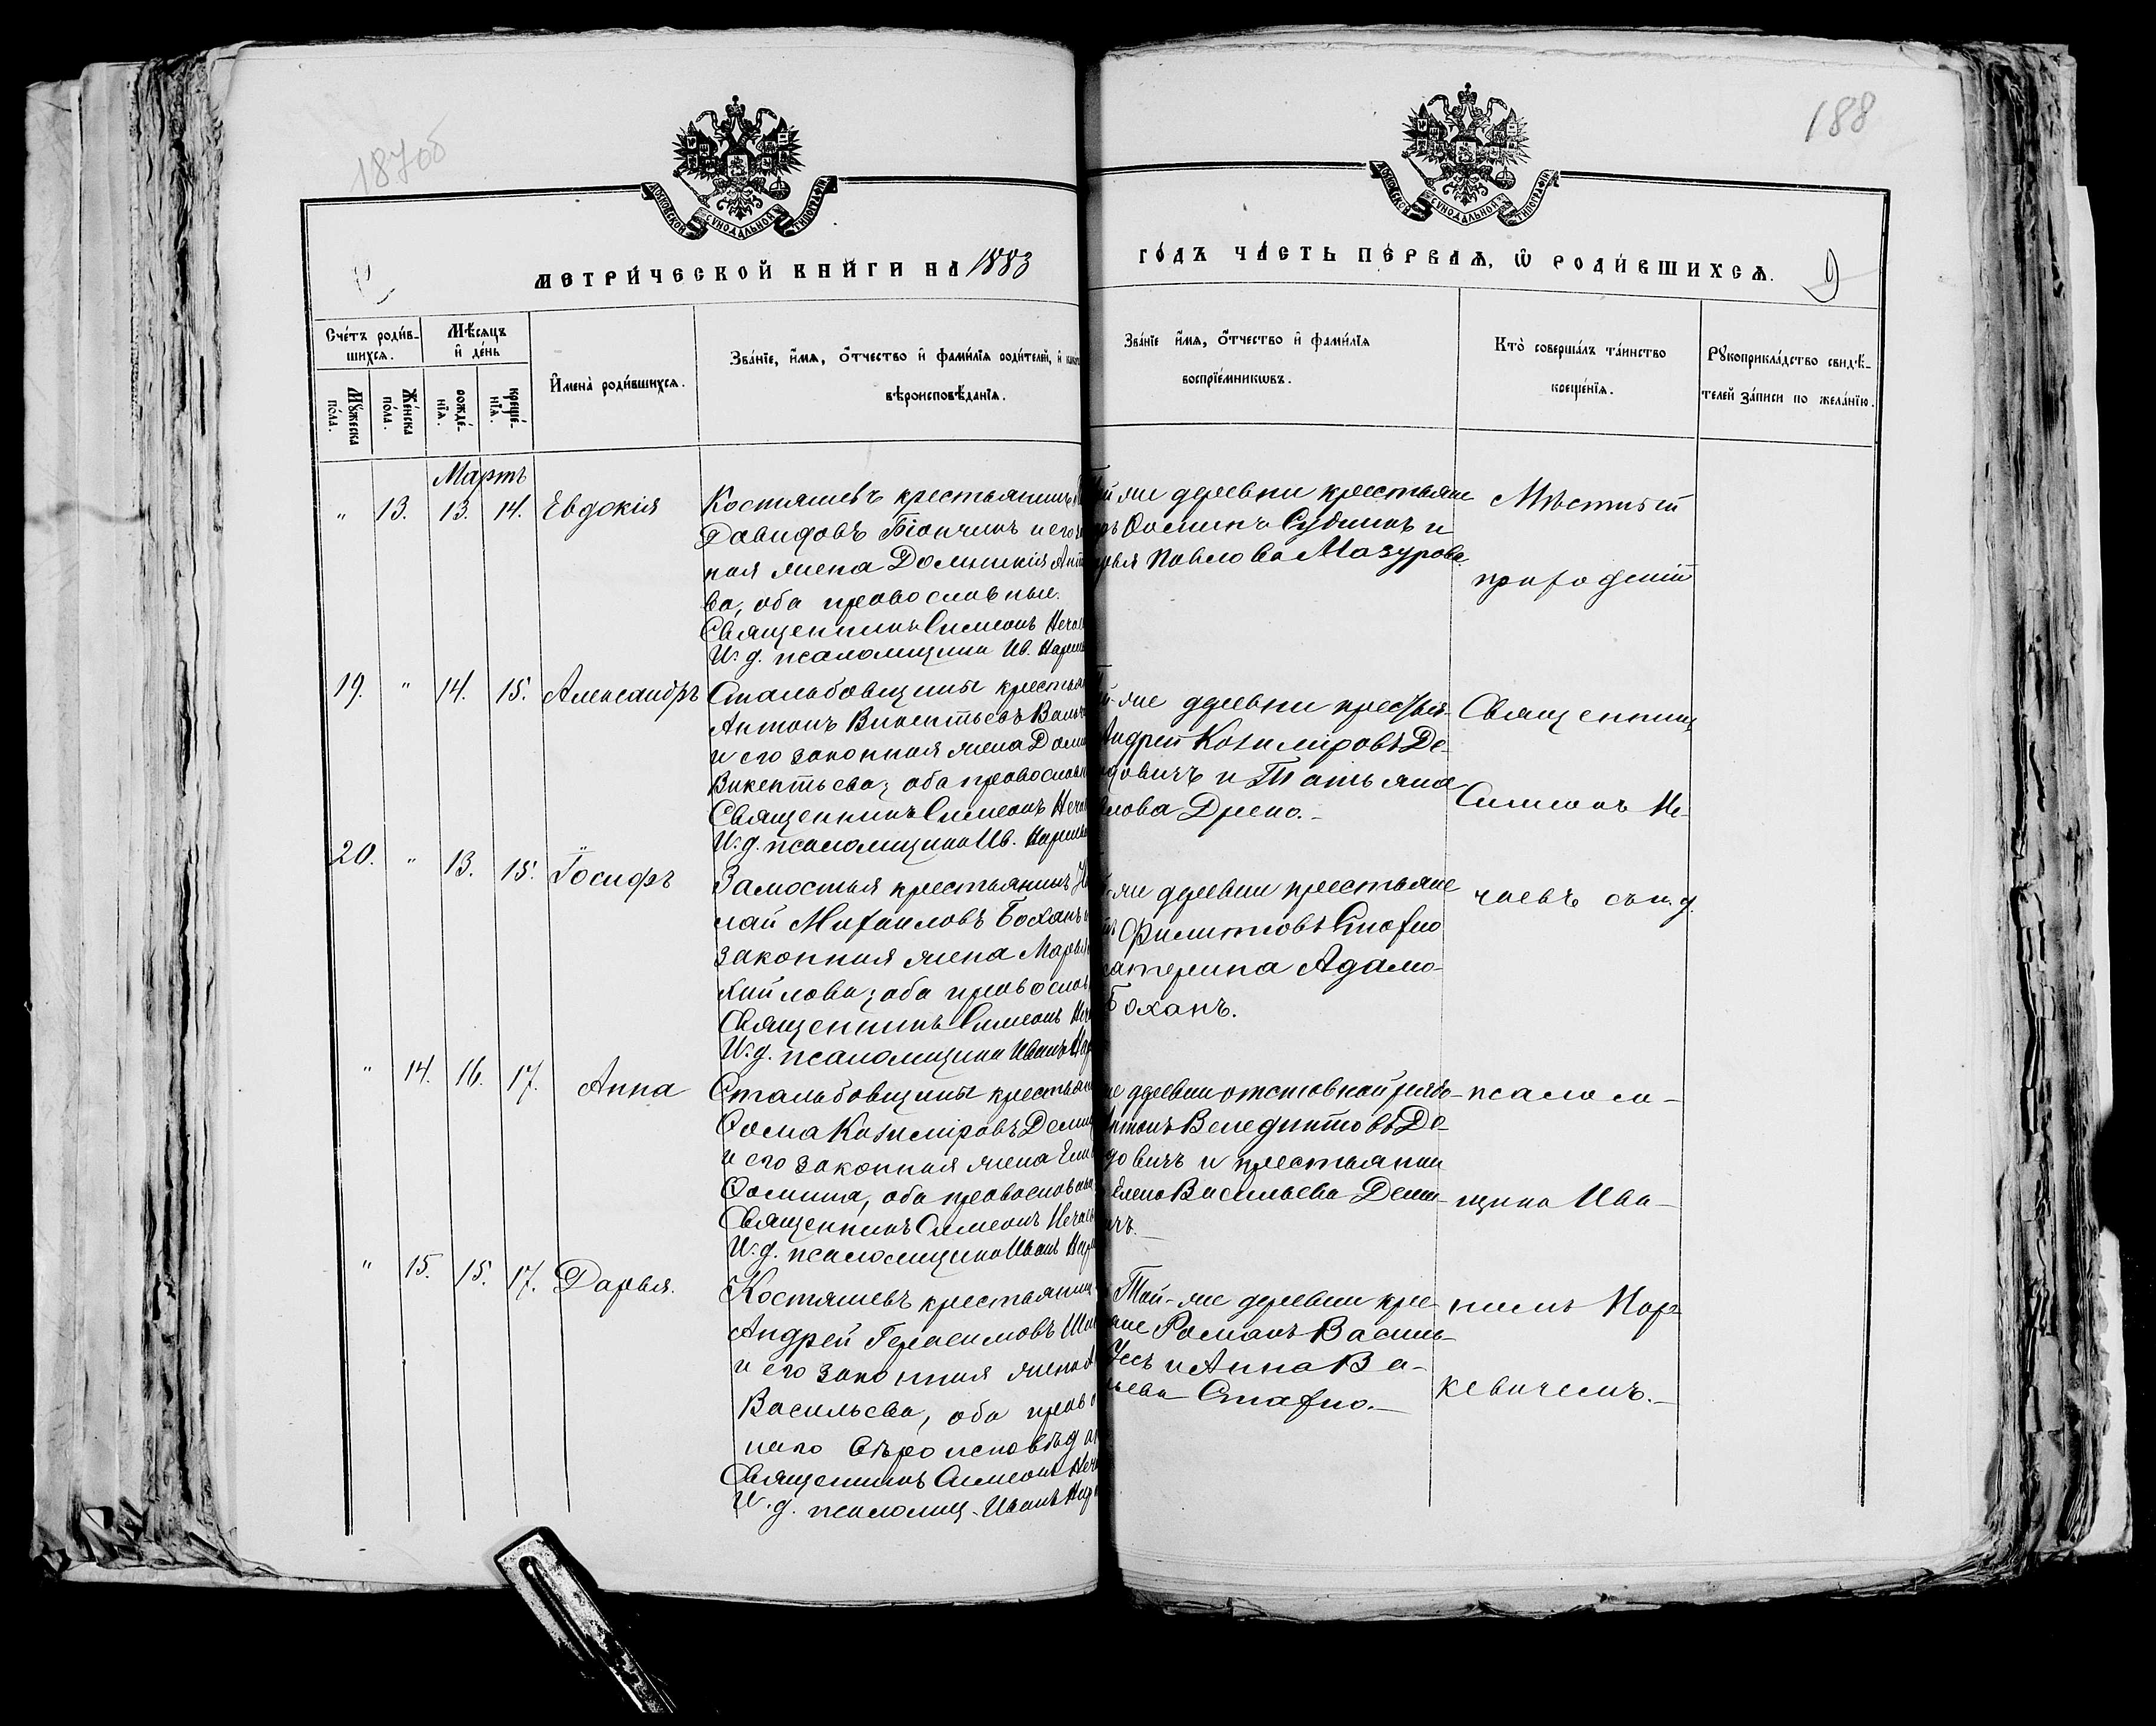 187об
188
МОСКОВСКОЙ СѴНОДАЛЬНОЙ ТИПОГРАФІИ
МОСКОВСКОЙ СѴНОДАЛЬНОЙ ТИПОГРАФІИ
МЕТРИ́ЧЕСКОЙ КНИ́ГИ НА 1883
ГО́ДЪ ЧА́СТЬ ПЕ́РВАѦ, Ѽ РОДИ́ВШИХСѦ.
9
Сче́тъ роди́в-
шихсѧ.
Мѣ́сяцъ
и҆ де́нь
Мꙋ́жеска
по́ла.
Же́нска
по́ла.
рожде́-
нїѧ.
креще́-
нїѧ.
И҆мена̀ роди́вшихсѧ.
Зва́нїе, и҆́мѧ, ѻ҆́тчество и҆ фами́лїѧ роди́телей, и҆
вѣроисповѣ́данїѧ.
Зва́нїе и҆́мѧ, ѻ҆́тчество и҆ фами́лїѧ
воспрїе́мникѡвъ.
Кто̀ соверша́лъ та́инство
креще́нїѧ.
Рꙋкоприкла́дство свидѣ́-
телей за́писи по жела́нїю.
Мартъ
" 13. 13. 14. Евдокія
Костяшевъ крестьянинъ
Давидовъ Тіончикъ и его
ная жена Домникія Ант
ва, оба православные.
Священникъ Симеонъ Неча
И. д. псаломщика Ив. Нарк
й же деревни крестьяне
Ѳоминъ Судникъ и
рья Павлова Мазурова
Мѣстный
приходскій
19. " 14. 15. Александръ
Стальбовщины крестья
Антонъ Викентьевъ
и его законная жена Доми
Викентьева; оба православн
Священникъ Симеонъ Неча
И. д. псаломщика Ив. Нарк
й-же деревни крестья-
Андрей Козиміровъ Де-
довичъ и Татьяна
лова Дрено.-
Священник
Симеонъ Не-
20. " 13. 15. Іосифъ
Замостья крестьянинъ Н
лай Михаиловъ Боханъ и
законная жена Марья
хайлова; оба правослов
Священникъ Симеонъ Неч
И. д. псаломщика Иванъ Нар
же деревни крестьяне
Филиповъ Стахно
катерина Адамо-
Боханъ.
чаевъ съ и. д.
" 14. 16. 17. Анна
Стальбовщины крестьян
Ѳома Козиміровъ Деми
и его законная жена Ели
Ѳомина, оба православны
Священникъ Симеонъ Неча
И. д. псаломщика Иванъ Нар
же деревни отставной рядо-
Антонъ Венедиктовъ Де-
довичъ и крестьянки
Елена Васильева Деми-
ичъ.-
псалом-
щика Ива-
" 15. 15. 17. Дарья.
Костяшевъ крестьянин
Андрей Герасимовъ
и его законная жена А
Васильева, оба право
наго вѣроисповѣдан
Священникъ Симеонъ Неч
И. д. псаломщ. Иванъ Нар
Той-же деревни кре-
яне Романъ Василь-
Усъ и Анна Ва-
ьева Стахно.-
номъ Нар-
кевичемъ.-